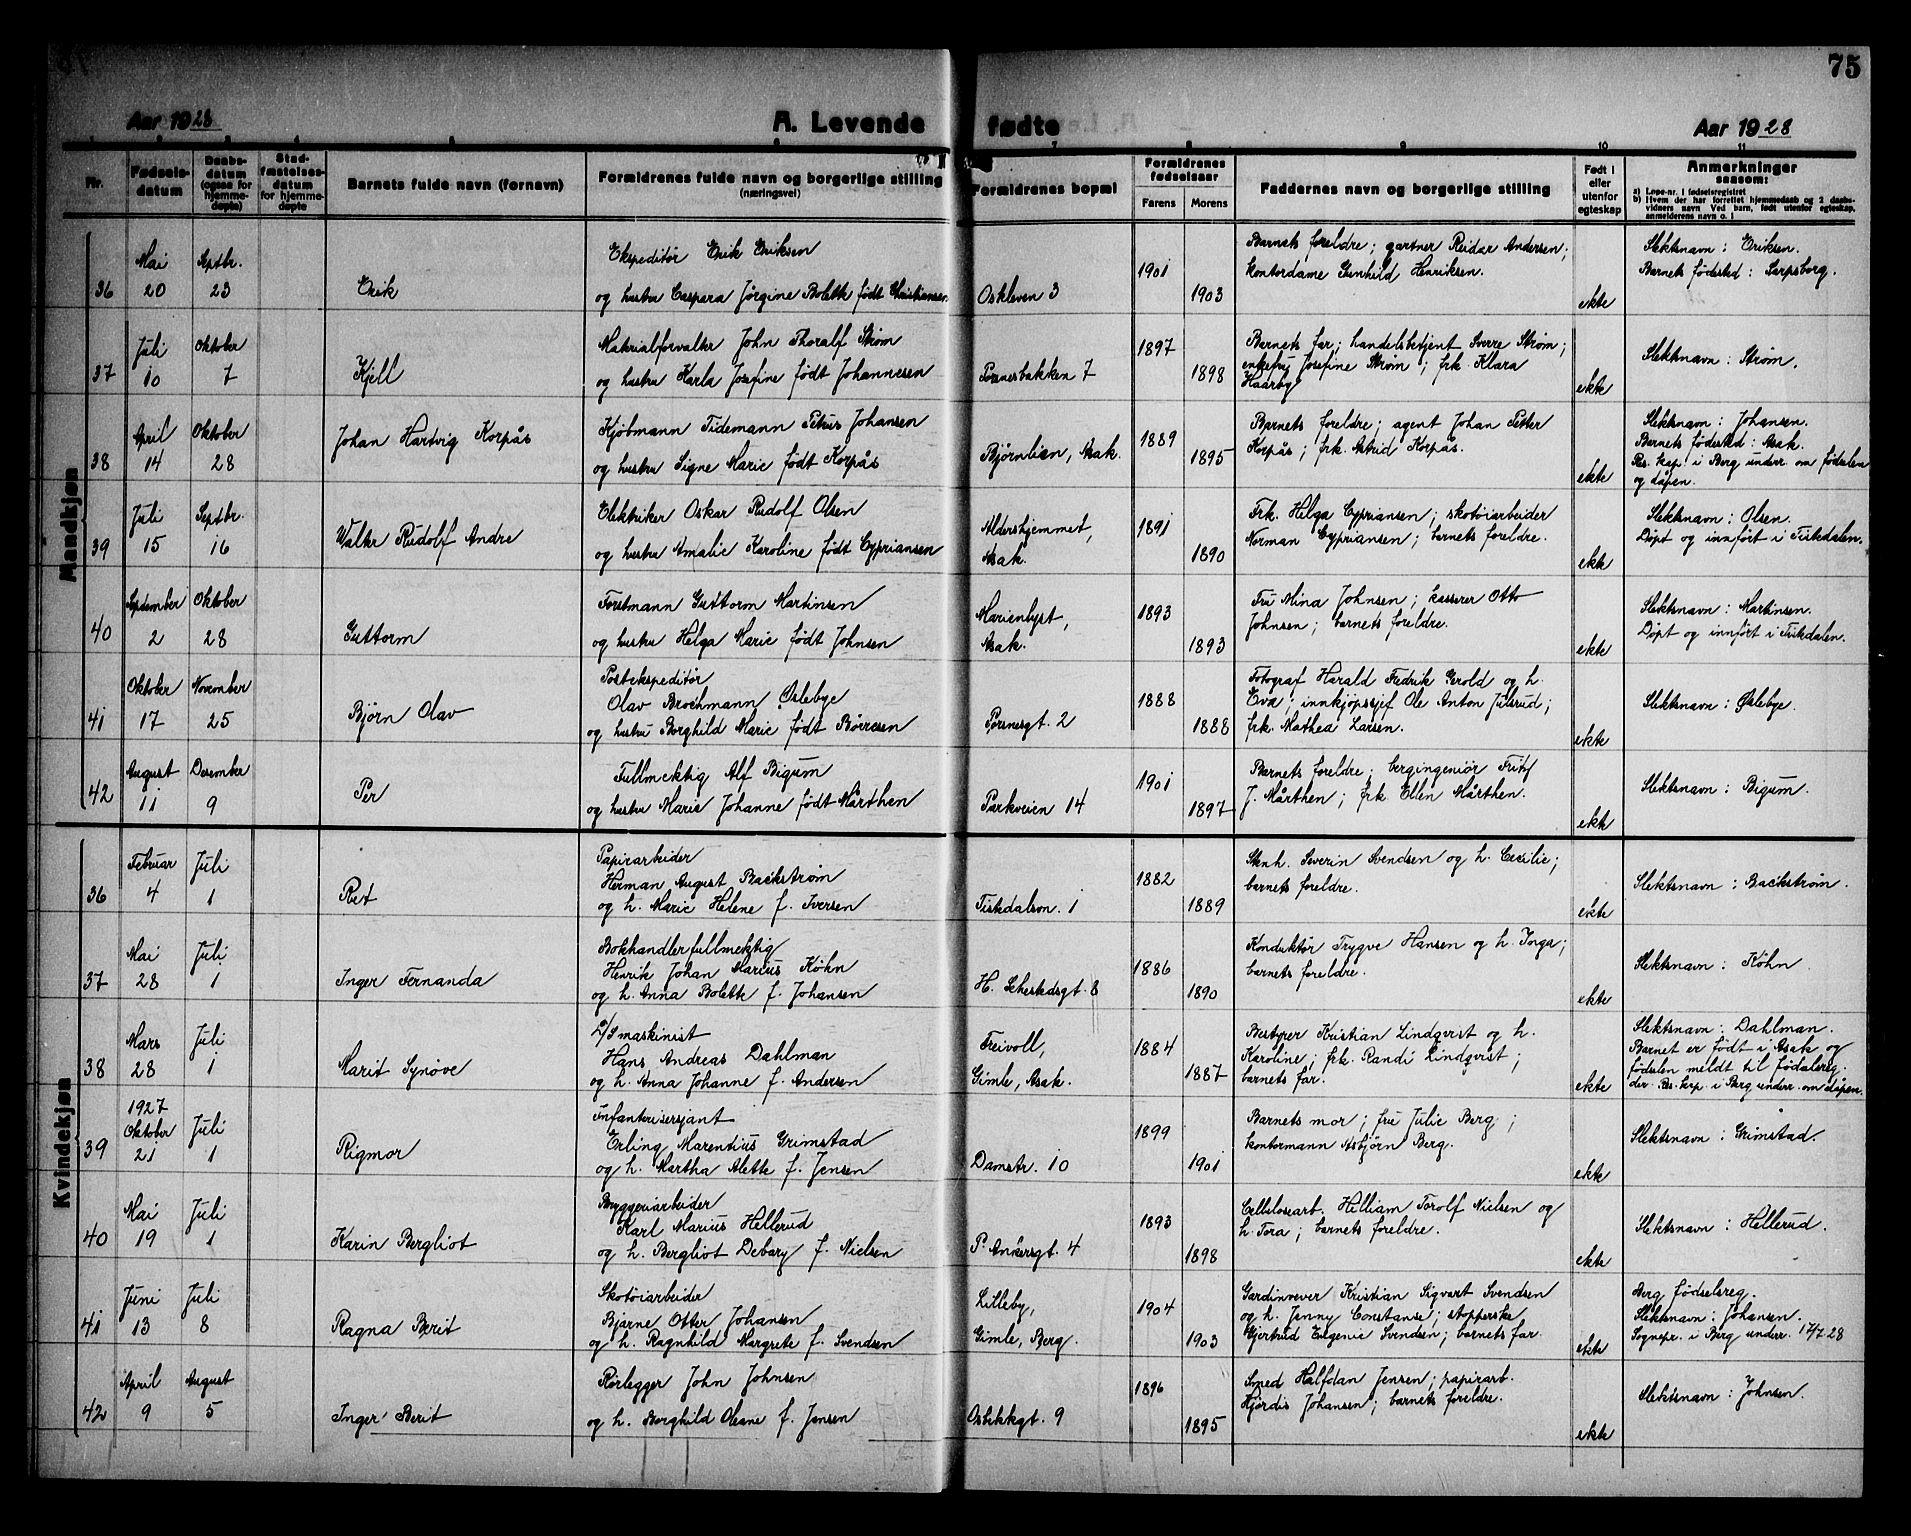 75
Aar 1928
A. Levende
fødte
Aar 1928
1 2 3 4 5 6
7 8 9 10 11
Nr.
Fødsels-
datum
Daabs-
datum
(ogsaa for
hjemme-
døpte)
Stad-
fæstelses-
datum
for hjemme-
døpte
Barnets fulde navn (fornavn)
Forældrenes fulde navn og borgerlige stilling
(næringsvei)
Forældrenes bopæl
Forældrenes
fødselsaar
Farens
Morens
Faddernes navn og borgerlige stilling
Født i
eller
utenfor
egteskap
Anmerkninger
saasom:
a) Løpe-nr. i fødselsregistret
b) Hvem der har forrettet hjemmedaab og 2 daabs-
vidners navn. Ved barn, født utenfor egteskap,
anmelderens navn o. l
Mandkjøn
36
Mai
20
Septbr.
23
Erik
Ekspeditør Erik Eriksen
og hustru Caspara Jørgine Bolette født Christiansen
Oskleven 3
1901
1903
Barnets foreldre; gartner Reidar Andersen;
kontordame Gunhild Henriksen.
ekte
Slektsnavn: Eriksen.
Barnets fødested: Sarpsborg.
37
Juli
10
Oktober
7
Kjell
Materialforvalter John Thoralf Strøm
og hustru Karla Josefine født Johannesen
Porsnesbakken 7
1897
1898
Barnets far; handelsbetjent Sverre Strøm;
enkefru Josefine Strøm; frk. Klara
Haarby
ekte
Slektsnavn: Strøm.
38
April
14
Oktober
28
Johan Hartvig Korpås
Kjøbmann Tidemann Petrus Johansen
og hustru Signe Marie født Korpås
Bjørnlien, Asak.
1889
1895
Barnets foreldre; agent Johan Petter
Korpås; frk. Astrid Korpås.
ekte
Slektsnavn: Johansen.
Barnets fødested: Asak.
Res. kap. i Berg underr. om fødselen
og dåpen.
39
Juli
15
Septbr.
16
Walter Rudolf Andre
Elektriker Oskar Rudolf Olsen
og hustru Amalie Karoline født Cypriansen
Aldershjemmet,
Asak.
1891
1890
Frk. Helga Cypriansen; skotøiarbeider
Norman Cypriansen; barnets foreldre.
ekte
Slektsnavn: Olsen.
Døpt og innført i Tistedalen.
40
September
2
Oktober
28
Guttorm
Forstmann Guttorm Martinsen
og hustru Helga Marie født Johnsen
Marienlyst,
Asak.
1893
1893
Fru Mina Johnsen; kasserer Otto
Johnsen; barnets foreldre.
ekte
Slektsnavn: Martinsen.
Døpt og innført i Tistedalen.
41
Oktober
17
November
25
Bjørn Olav
Postekspeditør
Olav Brochmann Øslebye
og hustru Borghild Marie født Børresen
Porsnesgt. 2
1888
1888
Fotograf Harald Fredrik Gerold og h.
Eva; innkjøpssjef Ole Anton Julsrud;
frk. Mathea Larsen.
ekte
Slektsnavn: Øslebye.
42
August
11
Desember
9
Per
Fullmektig Alf Bigum
og hustru Marie Johanne født Mårthen
Parkveien 14
1901
1897
Barnets foreldre; bergingeniør Fritjof
J. Mårthen; frk. Ellen Mårthen.
ekte
Slektsnavn: Bigum.
Kvindekjøn
36
Februar
4
Juli
1
Reit
Papirarbeider
Herman August Backstrøm
og h. Marie Helene f. Iversen
Tistedalsvn. 1
1882
1889
Stenh. Severin Svendsen og h. Cecilie;
barnets foreldre.
ekte
Slektsnavn: Backstrøm.
37
Mai
28
Juli
1
Inger Fernanda
Bokhandlerfullmektig
Henrik Johan Marius Køhn
og h. Anna Bolette f. Johansen
H. Sehestedsgt. 8
1886
1890
Konduktør Trygve Hansen og h. Inga;
barnets foreldre.
ekte
Slektsnavn: Køhn
38
Mars
28
Juli
1
Marit Synøve
D/S maskinist
Hans Andreas Dahlman
og h. Anna Johanne f. Andersen
Freivoll,
Gimle, Asak.
1884
1887
Bestyrer Kristian Lindqvist og h.
Karoline; frk. Randi Lindqvist;
barnets far.
ekte
Slektsnavn: Dahlman.
Barnet er født i Asak og
fødselen meldt til fødselsreg.
der. Res. kap. i Berg underr. om dåpen.
39
1927
Oktober
21
Juli
1
Rigmor
Infanterisersjant
Erling Marentius Grimstad
og h. Martha Alette f. Jensen
Damstr. 10
1899
1901
Barnets mor; fru Julie Berg;
kontormann Asbjørn Berg.
ekte
Slektsnavn: Grimstad.
40
Mai
19
Juli
1
Karin Bergliot
Bryggeriarbeider
Karl Marius Hellerud
og h. Bergliot Debary f. Nielsen
P. Ankersgt. 4
1893
1898
Cellulosearb. Hilliam Torolf Nielsen og
h. Tora; barnets foreldre.
ekte
Slektsnavn: Hellerud.
41
Juni
13
Juli
8
Ragna Berit
Skotøiarbeider
Bjarne Otter Johansen
og h. Ragnhild Margrete f. Svendsen
Lilleby,
Gimle, Berg.
1904
1903
Gardinvever Kristian Sigvart Svendsen
og h. Jenny Constanse; stopperske
Gjertrud Eugenie Svendsen; barnets far.
ekte
Berg fødselsreg.
Slektsnavn: Johansen.
Sognepr. i Berg underr. 17/7 28
42
April
9
August
5
Inger Berit
Rørlegger John Johnsen
og h. Borghild Oleane f. Jensen
Osbekkgt. 9
1896
1895
Smed Halfdan Jensen; papirarb.
Hjørdis Johansen; barnets foreldre.
ekte
Slektsnavn: Johnsen.